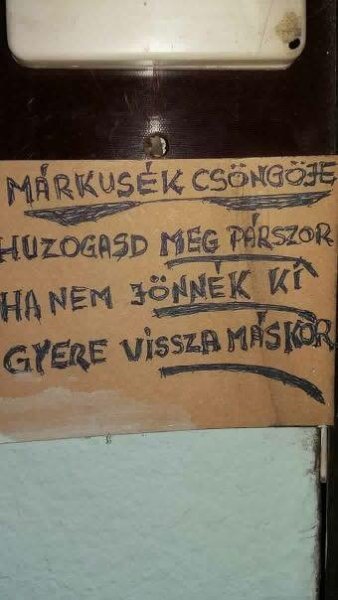 MÁRKUSÉK CSÖNGŐJE
HUZOGASD MEG PÁRSZOR
HA NEM JÖNNÉK KI
GYERE VISSZA MÁSKOR